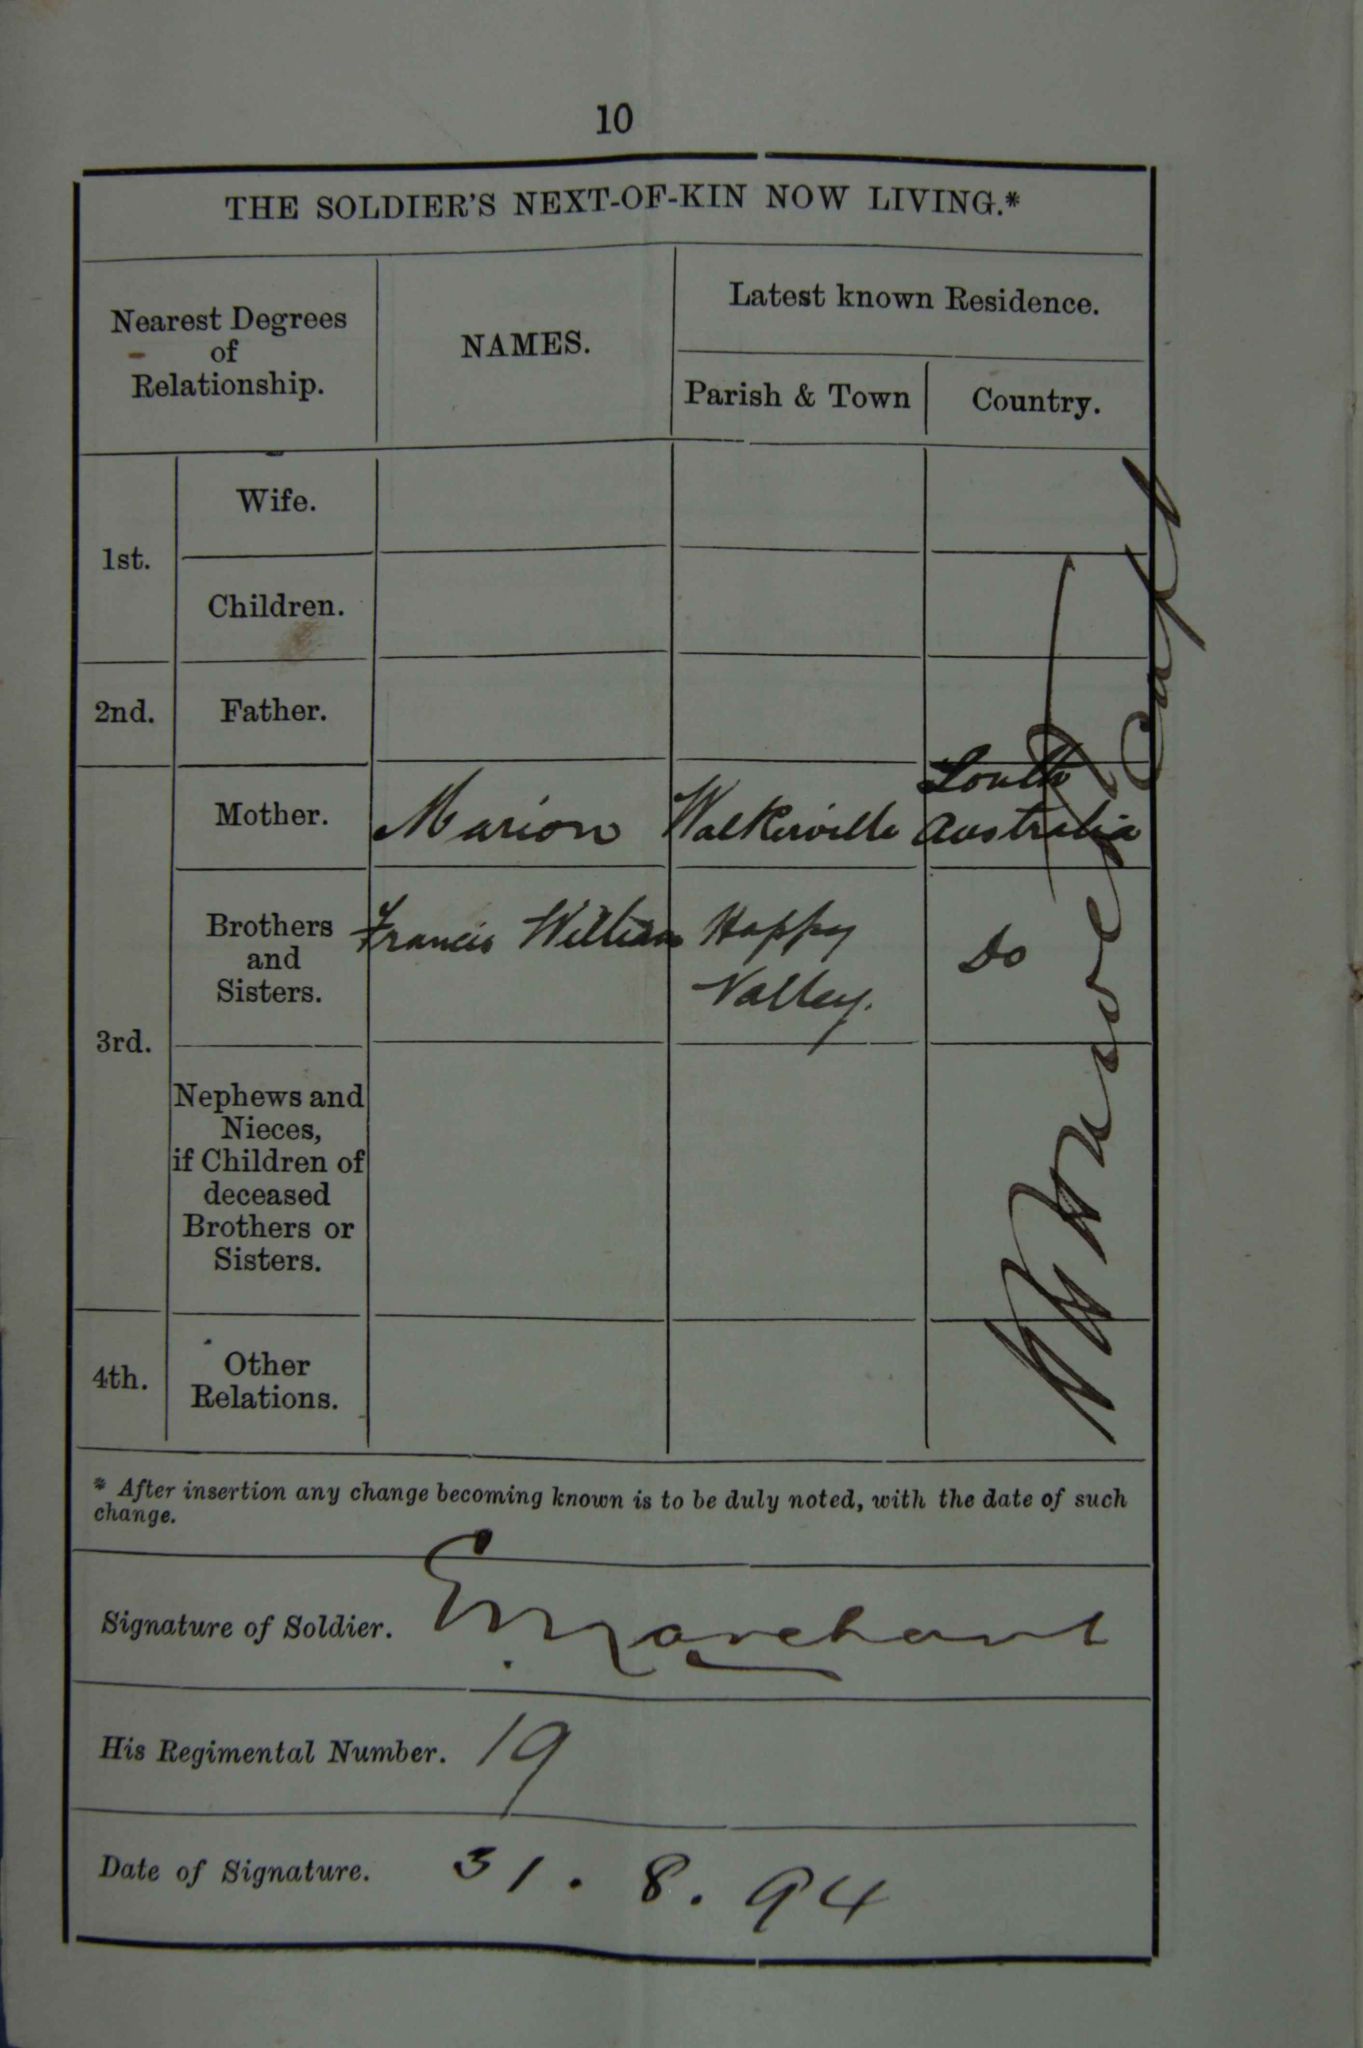 10
THE SOLDIER'S NEXT-OF-KIN NOW LIVING.*
Nearest Degrees
of
Relationship.
NAMES.
Latest known Residence.
Parish & Town
Country.
1st.
Wife.
Children.
2nd.
Father.
3rd.
Mother.
Marion
Walkerville
South
Australia
Brothers
and
Sisters.
Francis William
Happy
Valley.
Do
Nephews and
Nieces,
if Children of
deceased
Brothers or
Sisters.
4th.
Other
Relations.
Capt
* After insertion any change becoming known is to be duly noted, with the date of such
change.
Signature of Soldier. E. Marchant
His Regimental Number. 19
Date of Signature. 31.8.94